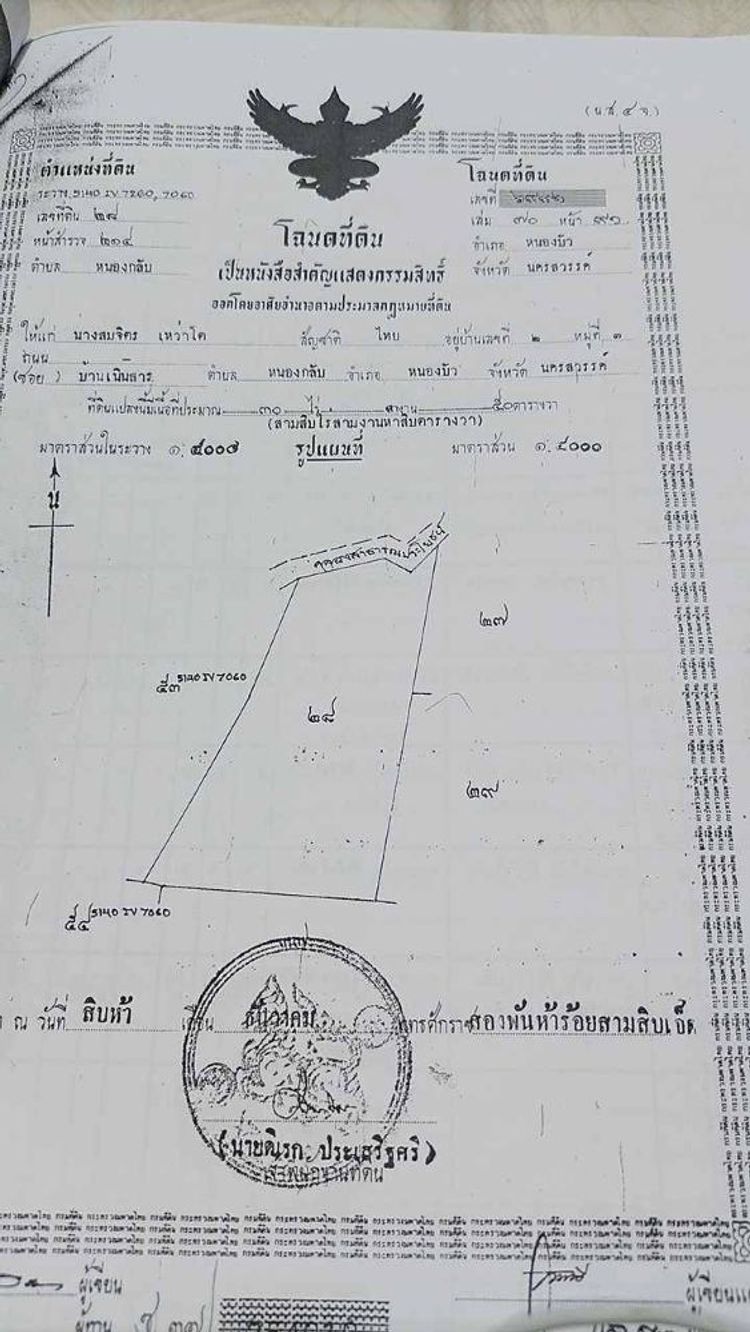 (น.ส. ๔ จ.)
ตำแหน่งที่ดิน
ระวาง 5140 IV 7260, 7060
เลขที่ดิน ๒๘
หน้าสำรวจ ๒๑๔
ตำบล หนองกลับ
โฉนดที่ดิน
เลขที่
เล่ม ๗๐ หน้า
อำเภอ หนองบัว
จังหวัด นครสวรรค์
โฉนดที่ดิน
เป็นหนังสือสำคัญแสดงกรรมสิทธิ์
ออกโดยอาศัยอำนาจตามประมวลกฎหมายที่ดิน
ให้แก่ นางสมจิตร เหว่าโต สัญชาติ ไทย อยู่บ้านเลขที่ ๒ หมู่ที่ ๓
ถนน
(ซอย) บ้านเนินสาร ตำบล หนองกลับ อำเภอ หนองบัว จังหวัด นครสวรรค์
ที่ดินแปลงนี้มีเนื้อที่ประมาณ ๓๐ ไร่ งาน ๕๐ ตารางวา
(สามสิบไร่สามงานห้าสิบตารางวา)
มาตราส่วนในระวาง ๑: ๔๐๐๐ รูปแผนที่ มาตราส่วน ๑: ๔๐๐๐
น
คลองสาธารณประโยชน์
๒๗
๕๓ 5140 IV 7060
๒๘
๒๙
๕๔ 5140 IV 7060
ณ วันที่ สิบห้า เดือน ธันวาคม พุทธศักราช สองพันห้าร้อยสามสิบเอ็ด
(นายดิเรก ประเสริฐศรี)
เจ้าพนักงานที่ดิน
ผู้เขียน
ผู้ทาน
ผู้เขียนแผ